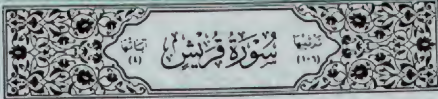 ترتيبها (١٠٦) سُورَةُ قُرَيْشٍ آياتها (٤)